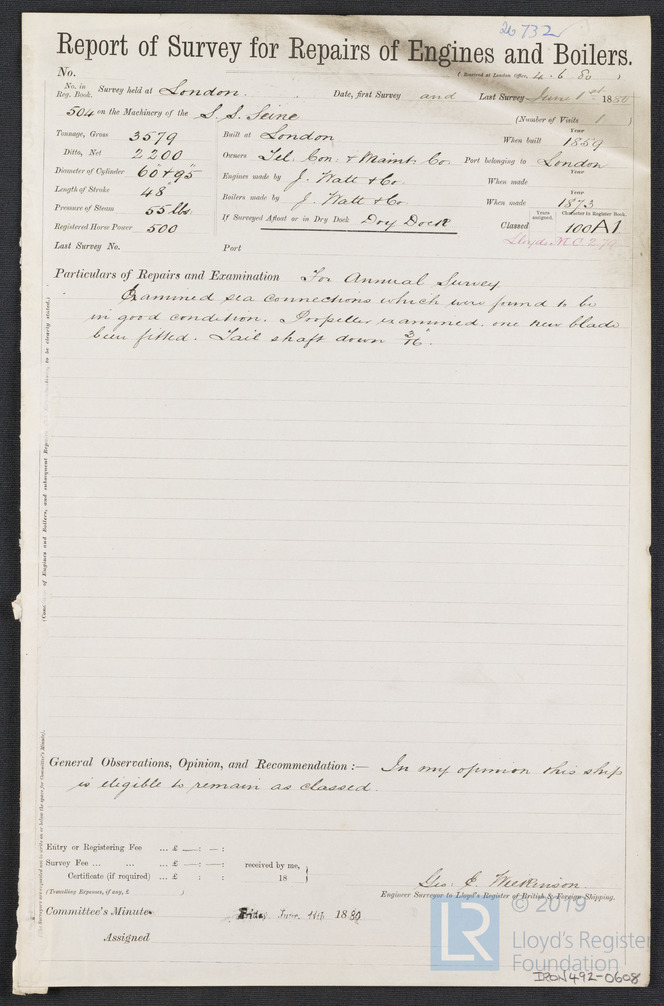 26732
Report of Survey for Repairs of Engines and Boilers.
No. (Received at London Office, 4. 6. 80 )
No. in Reg. Book. Survey held at London. Date, first Survey and Last Survey June 1st 1880
504 on the Machinery of the S. S. Seine (Number of Visits 1 )
Tonnage, Gross 3579 Built at London When built Year 1859
Ditto, Net 2200 Owners Tel. Con. & Maint. Co. Port belonging to London
Diameter of Cylinder 60" & 95" Engines made by J. Watt & Co. When made Year
Length of Stroke 48" Boilers made by J. Watt & Co. When made Year 1873
Pressure of Steam 55 lbs. If Surveyed Afloat or in Dry Dock Dry Dock Classed Years assigned. Character in Register Book. 100A1
Registered Horse Power 500 Lloyds M.C. 2.79
Last Survey No. Port
Particulars of Repairs and Examination For Annual Survey
Examined sea connections which were found to be
in good condition. Propeller examined. one new blade
been fitted. Tail shaft down 3/16".
General Observations, Opinion, and Recommendation :— In my opinion this ship
is eligible to remain as classed.
Entry or Registering Fee ... £ — : — :
Survey Fee ... ... ... £ — : — : received by me,
Certificate (if required) ... £ — : — : 18
(Travelling Expenses, if any, £ )
Geo. E.
Engineer Surveyor to Lloyd's Register of British & Foreign Shipping.
Committee's Minute Friday, June 1880
Assigned
© 2019
LR
Lloyd's Register
Foundation
IRON492-0608